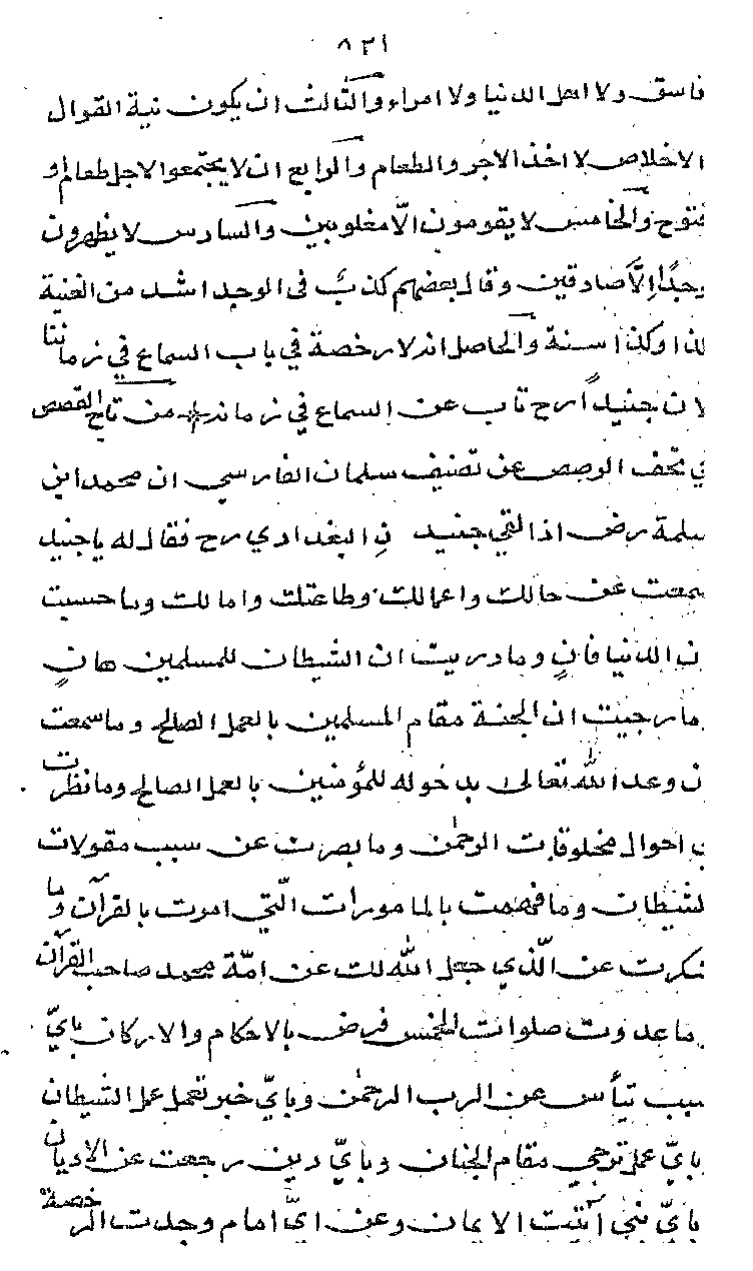 ٨٢١
فاسق ولا اهل الدنيا ولا امراء والثالث ان يكون نية القوال
الاخلاص لا اخذ الاجر والطعام والرابع ان لا يجتمعوا لاجل طعام او
فتوح والخامس لا يقومون الّا مغلوبين والسادس لا يظهرون
وجدًا اِلَّا صادقين وقال بعضهم كذبٌ في الوجد اشد من الغيبة
كذا وكذا سنة والحاصل انه لا رخصة في باب السماع في زماننا
لان جنيدًا رح تاب عن السماع في زمانه من تاج القصص
في تحف الوصص عن تصنيف سلمان الفارسي ان محمد ابن
سلمة رض اذا لقي جنيد نِ البغدادي رح فقال له يا جنيد
سمعت عن حالك واعمالك وطاعتك وامالك وما حسبت
ان الدنيا فانٍ وما دريت ان الشيطان للمسلمين هانٍ
وما رجيت ان الجنة مقام المسلمين بالعمل الصالح وما سمعت
ان وعد اللّٰه تعالى بدخوله للمؤمنين بالعمل الصالح وما نظرت
احوال مخلوقات الرحمٰن وما بصرت عن سبب مقولات
الشيطان وما فهمت بالمامورات الّتي امرت بالقرآن وما
شكرت عن الّذي جعل اللّٰه لك عن امّة محمد صاحب القرآن
وما عدوت صلوات الخمس فرض بالاحكام والاركان بايّ
سبب تيأس عن الرب الرحمٰن وبايّ خبر تعمل عمل الشيطان
بايّ عمل ترجي مقام الجنان وبايّ دين رجعت عن الاديان
بايّ نبي أتيت الايمان وعن ايّ امام وجدت الرخصة